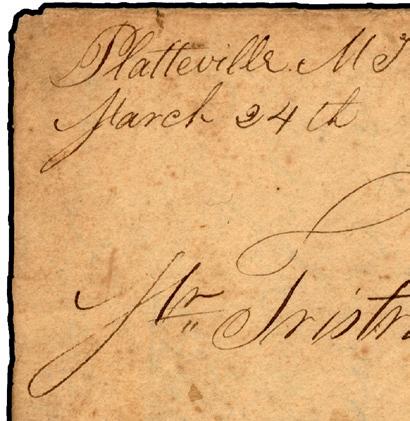 Platteville M.T
March 24th
Mr Tristr